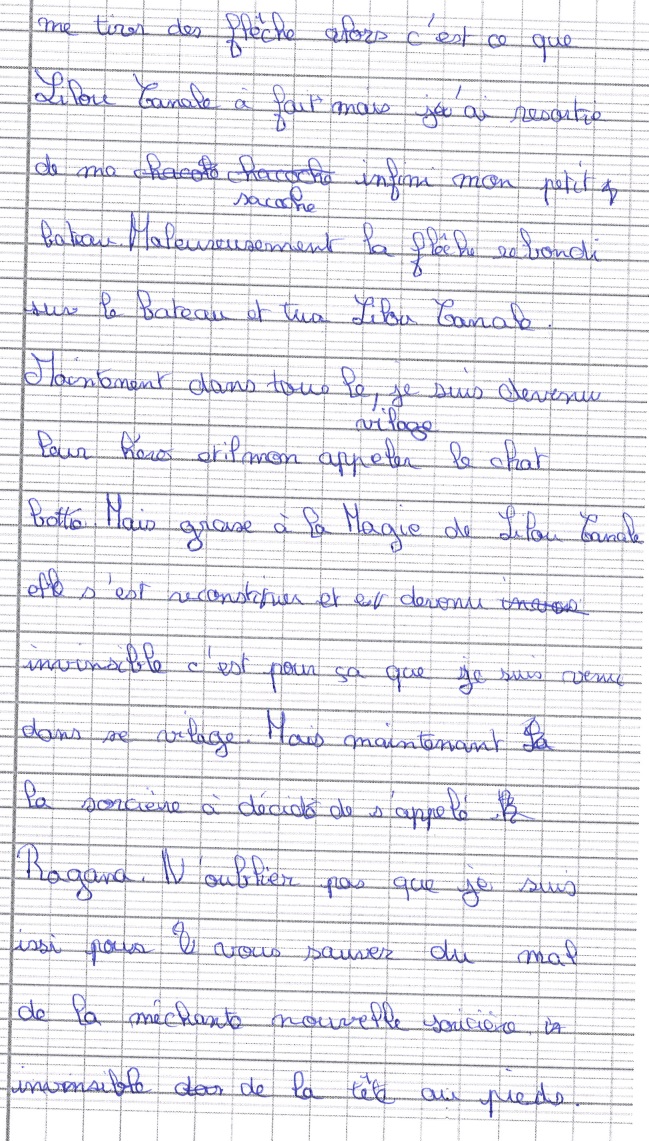 me tirer des flêche alors c'est ce que
Lilou Canale à fait mais j'ai resortie
de ma sacoche infini mon petit
bateau. Maleureusement la flêche rebondi
sur le bateau et tua Lilou Canale.
Maintenent dans tous le vilage, je suis devenu
leur héros et il mon appeler le chat
botté. Mais grase à la Magie de Lilou Canale
elle s'est reconstituer et est devenu
invinsible c'est pour sa que je suis venu
dans se vilage. Mais maintenant
la sorcière à décidé de s'appelé
Ragana. N'oublier pas que je suis
issi pour vous sauver du mal
de la méchante nouvelle sorcière
invinsible de la tête au pieds.